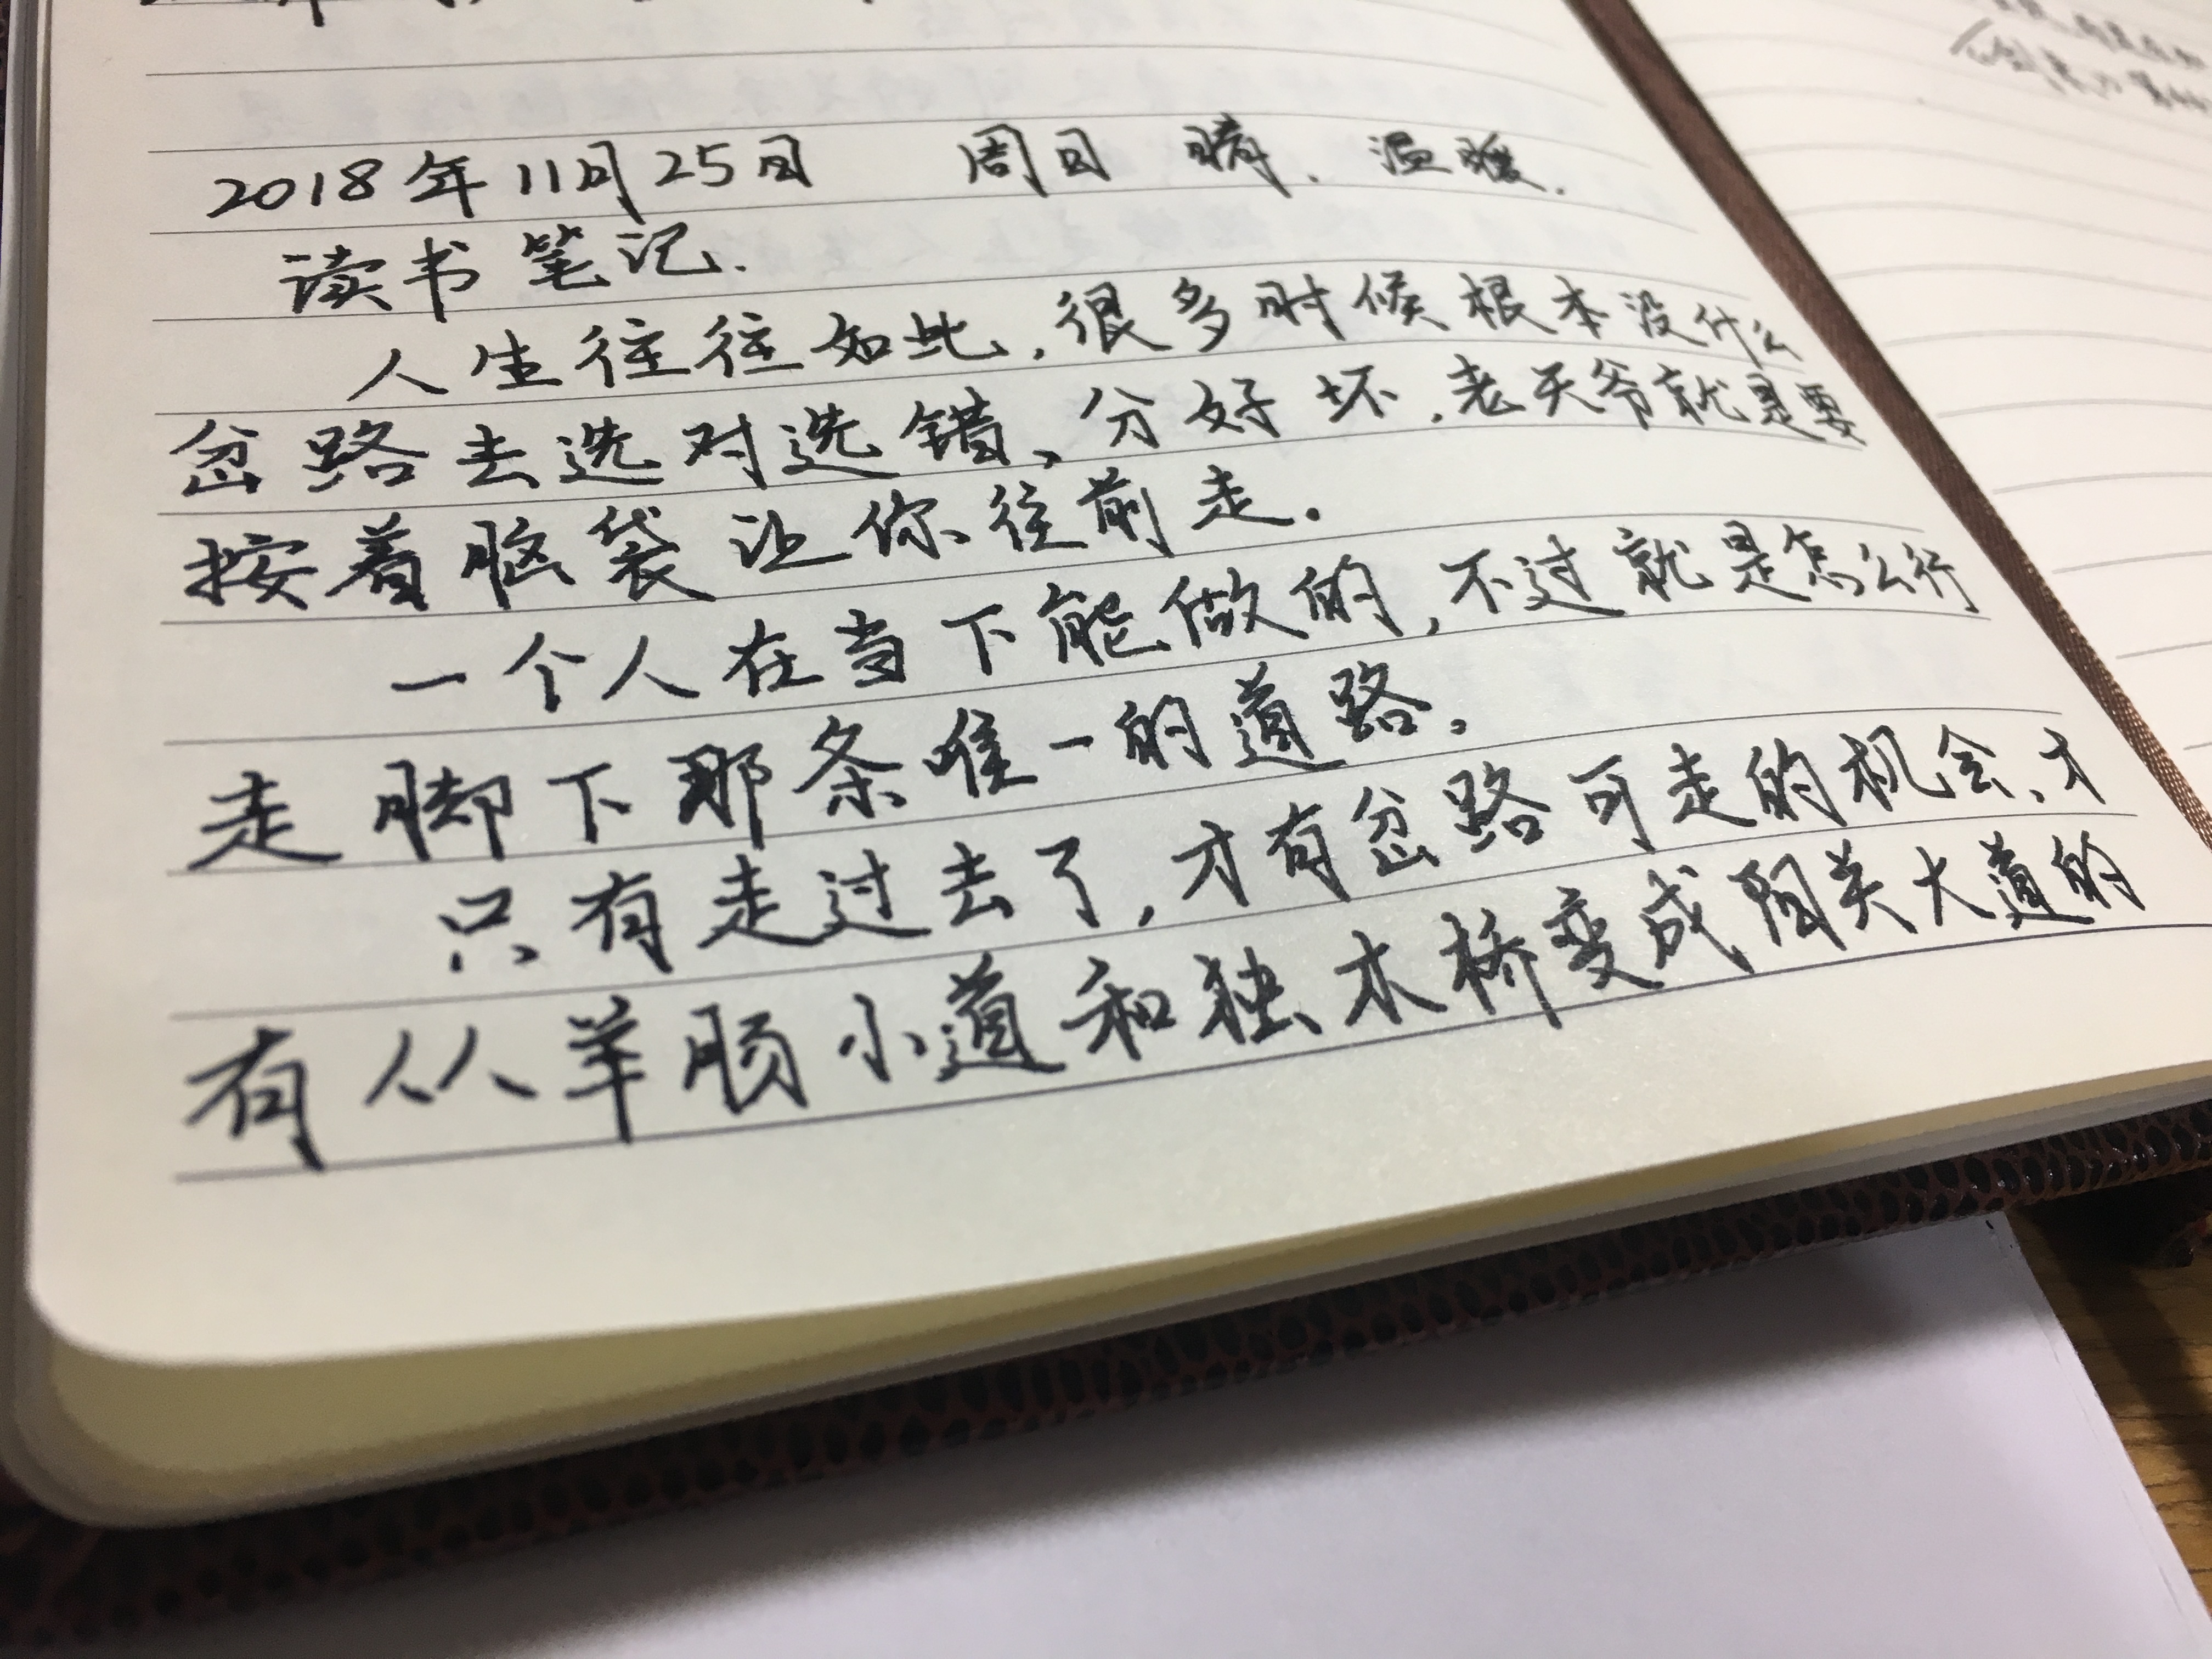 2018年11月25日 周日 晴. 温暖.
读书笔记.
人生往往如此,很多时候根本没什么
岔路去选对选错、分好坏.老天爷就是要
按着脑袋让你往前走.
一个人在当下能做的,不过就是怎么行
走脚下那条唯一的道路.
只有走过去了,才有岔路可走的机会、才
有从羊肠小道和独木桥变成阳关大道的